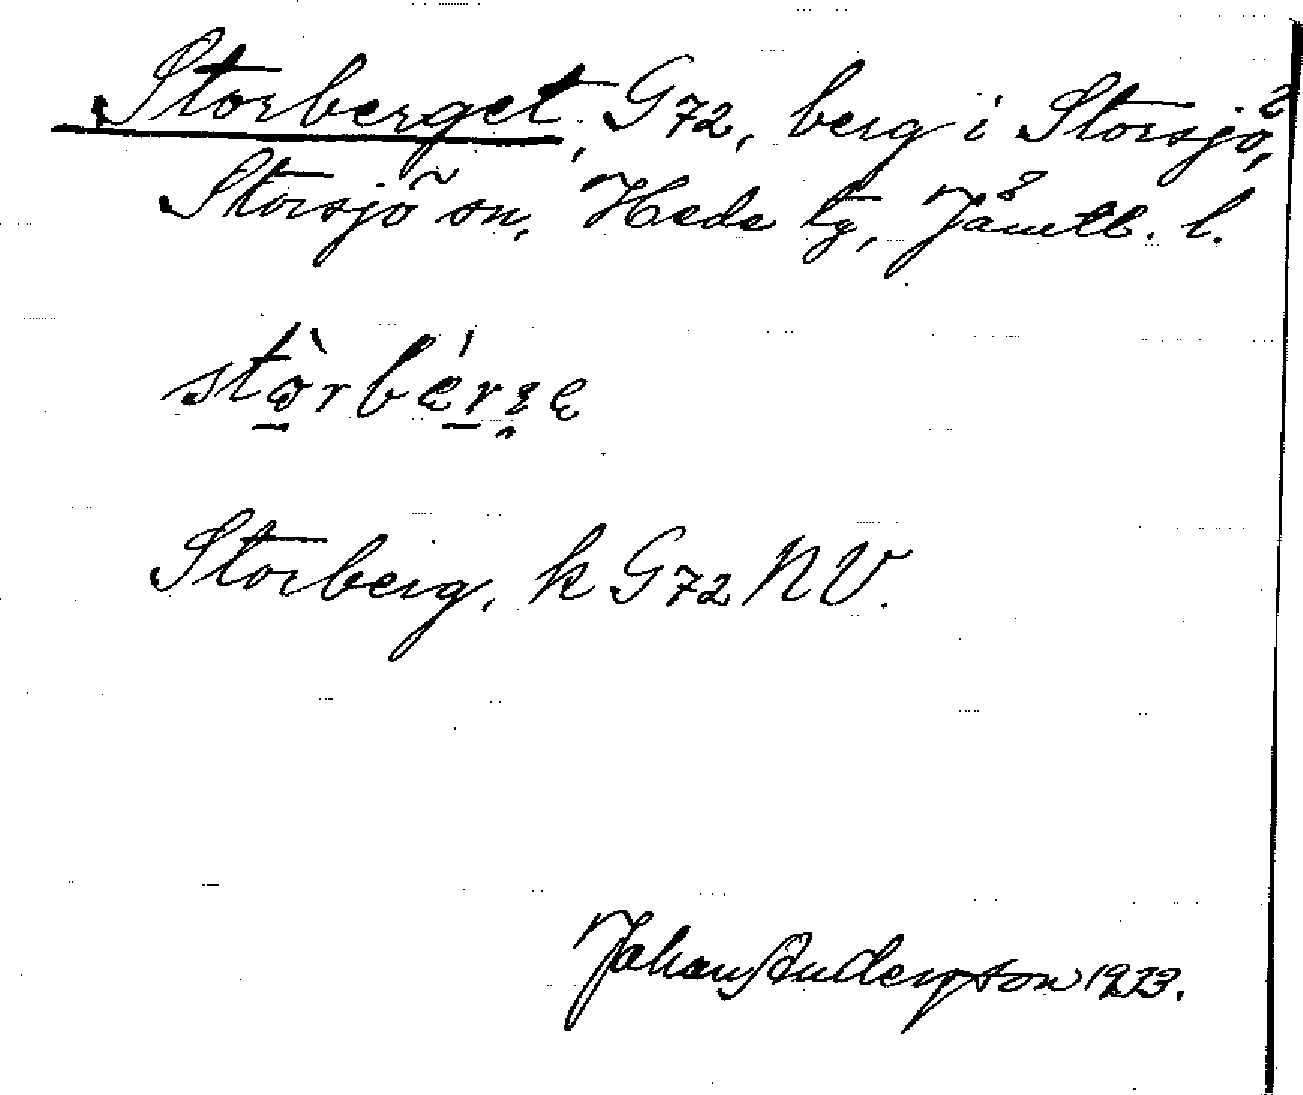 Storberget, G72, berg i Storsjö,
Storsjö sn, Hede tg, Jämtl. l.
Storberg, k G72 NV.
Johan Andersson 1933.